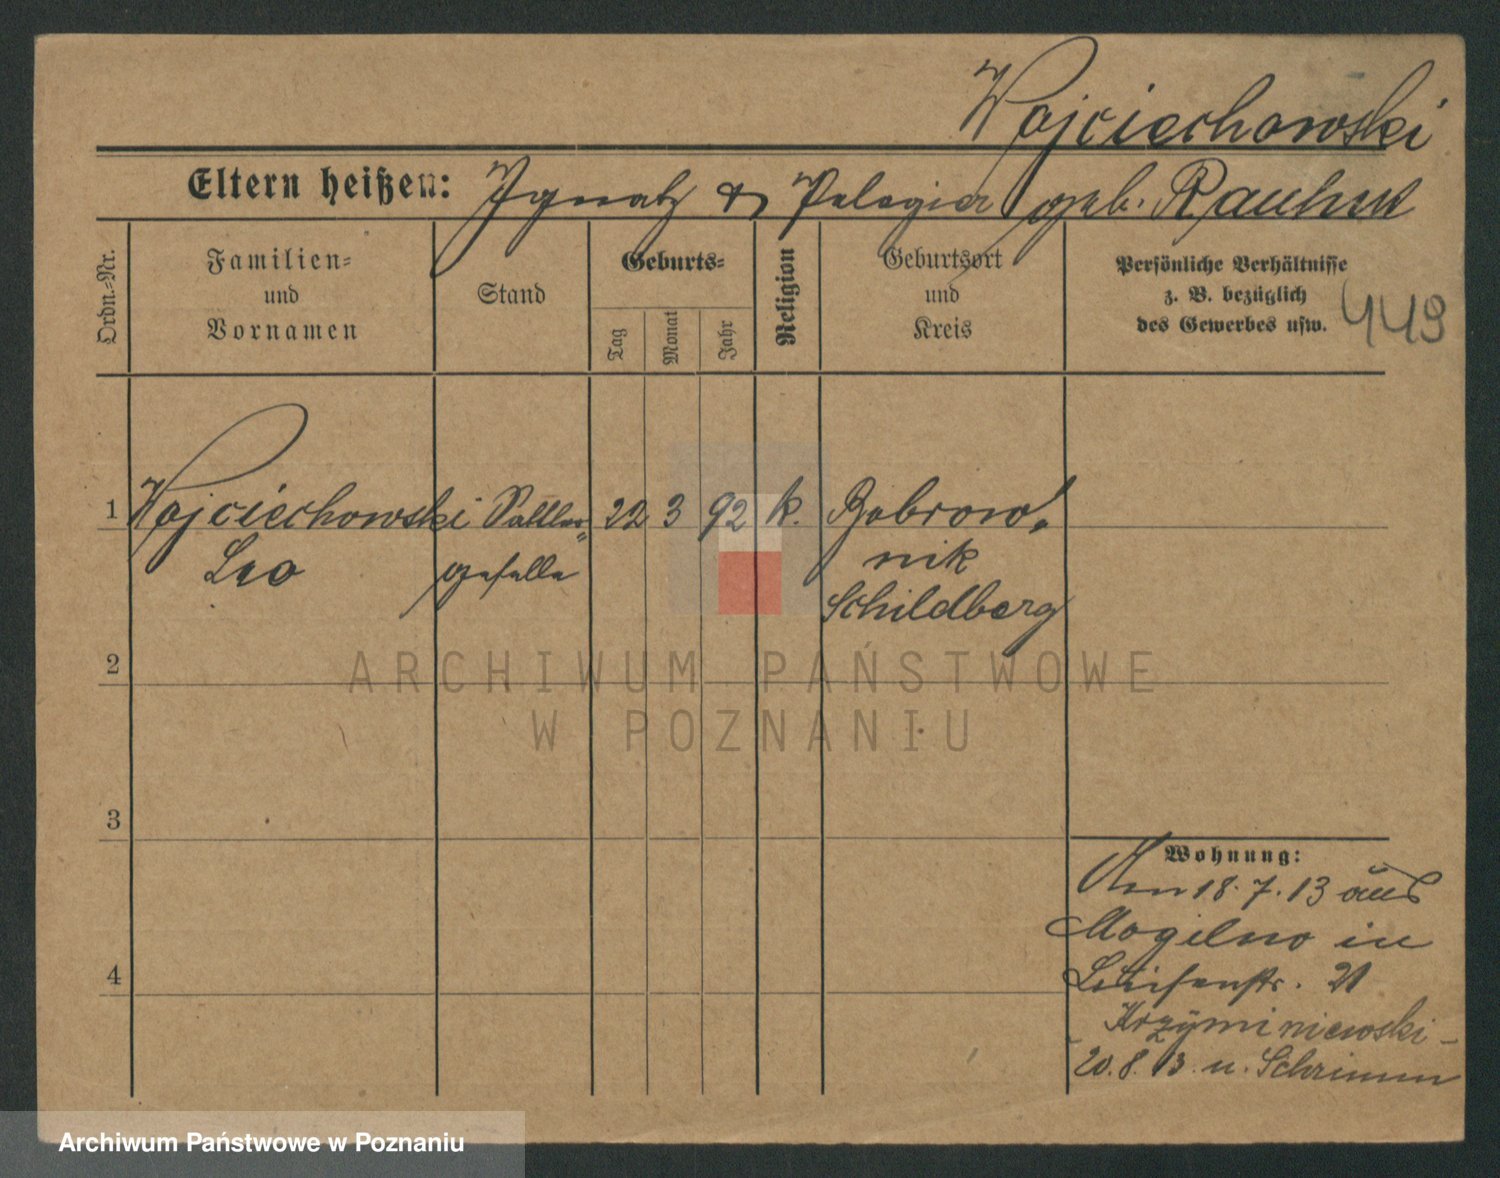 Wojciechowski
Eltern heißen: Ignatz & Pelagia geb.
Ordn.-Nr.
Familien-
und
Vornamen
Stand
Geburts-
Tag
Monat
Jahr
Religion
Geburtsort
und
Kreis
Persönliche Verhältnisse
z. B. bezüglich
des Gewerbes usw.
449
1 Wojciechowski Sattler 22 3 92 k. Bobrow-
Leo geselle nik
Schildberg
2
3
4
Wohnung:
Am 18.7.13 aus
Mogilno in
Luisenstr. 21
Krzyminiewski
20.8.13. n. Schrimm
ARCHIWUM PAŃSTWOWE
W POZNANIU
Archiwum Państwowe w Poznaniu